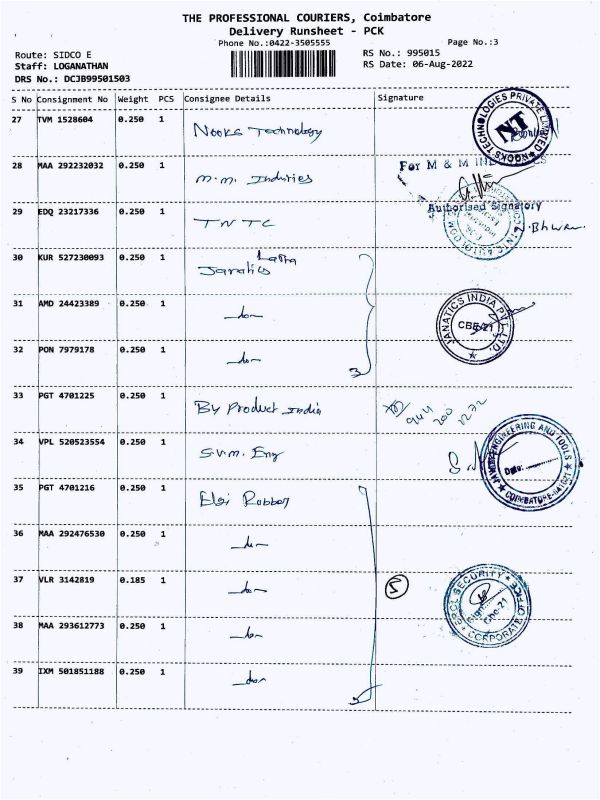 THE PROFESSIONAL COURIERS, Coimbatore
Delivery Runsheet - PCK
Phone No.:0422-3505555
Page No.:3
Route: SIDCO E
RS No.: 995015
Staff: LOGANATHAN
RS Date: 06-Aug-2022
DRS No.: DCJB99501503
S No Consignment No Weight PCS Consignee Details Signature
27 TVM 1528604 0.250 1 Nooks Technology
NOOKS TECHNOLOGIES PRIVATE LIMITED
NT
28 MAA 292232032 0.250 1 M.M. Industries
For M & M INDUSTRIES
Authorised Signatory
29 EDQ 23217336 0.250 1 TNTC
30 KUR 527230093 0.250 1 Janatics
31 AMD 24423389 0.250 1 -do-
JANATICS INDIA PVT. LTD.
CBE-21
32 PON 7979178 0.250 1 -do-
3
33 PGT 4701225 0.250 1 By Product India
944
200
2272
34 VPL 520523554 0.250 1 S.V.M. Eng
ENGINEERING AND TOOLS
Date:
COIMBATORE-641021
35 PGT 4701216 0.250 1 Elgi Rubber
36 MAA 292476530 0.250 1 -do-
37 VLR 3142819 0.185 1 -do-
5
SECURITY
Sign
Cbe-21
CORPORATE OFFICE
38 MAA 293612773 0.250 1 -do-
39 IXM 501851188 0.250 1 -do-
5